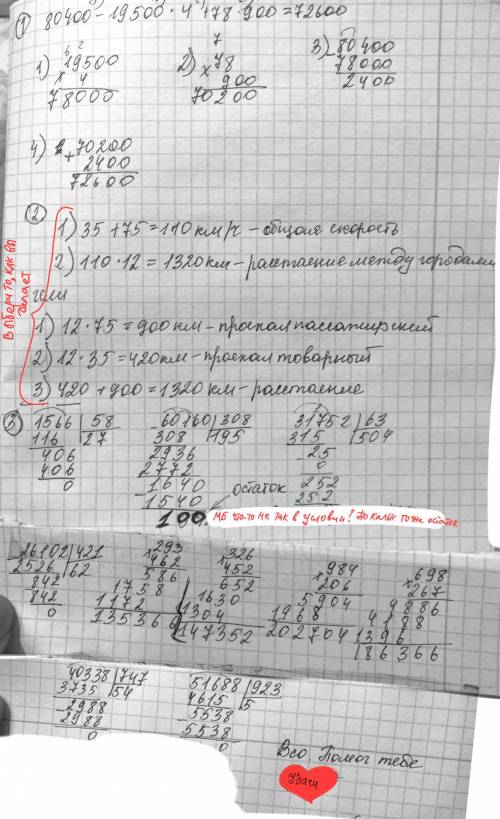 ① 80400 - 19500 · 4 + 78 · 900 = 72600
1) 19500
x 4
78000
2) x 78
900
70200
3) - 80400
78000
2400
4) + 70200
2400
72600
②
1) 35 + 75 = 110 км/ч - общая скорость
2) 110 · 12 = 1320 км - расстояние между городами
или
1) 12 · 75 = 900 км - проехал пассажирский
2) 12 · 35 = 420 км - проехал товарный
3) 420 + 900 = 1320 км - расстояние
Выбери то, как вы делает
③ 1566 | 58
116 | 27
406
406
0
60760 | 308
308 | 195
2936
2772
1640
1540
100
остаток
31752 | 63
315 | 504
25
0
252
252
МБ что-то не так в условии! По кальк тоже остаток
26102 | 421
2526 | 62
842
842
0
x 293
462
586
1758
1172
135366
x 326
452
652
1630
1304
147352
x 984
206
5904
1968
202704
x 698
267
4886
4188
1396
186366
40338 | 747
3735 | 54
2988
2988
0
51688 | 923
4615 | 5
5538
5538
0
Всё Помог тебе
Удачи